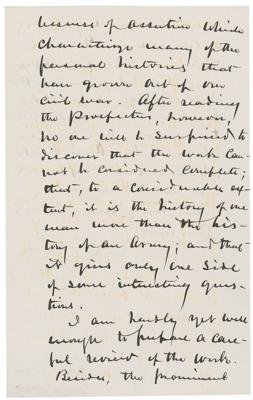 ness of assertion which
characterize many of the
personal histories that
have grown out of our
civil war. After reading
the Prospectus, however,
no one will be surprised to
discover that the work can
not be considered complete;
that, to a considerable ex
tent, it is the history of one
man more than the his-
tory of an Army; and that
it gives only one side
of some interesting ques-
tions.
I am hardly yet well
enough to prepare a care-
ful review of the work.
Besides, the prominent